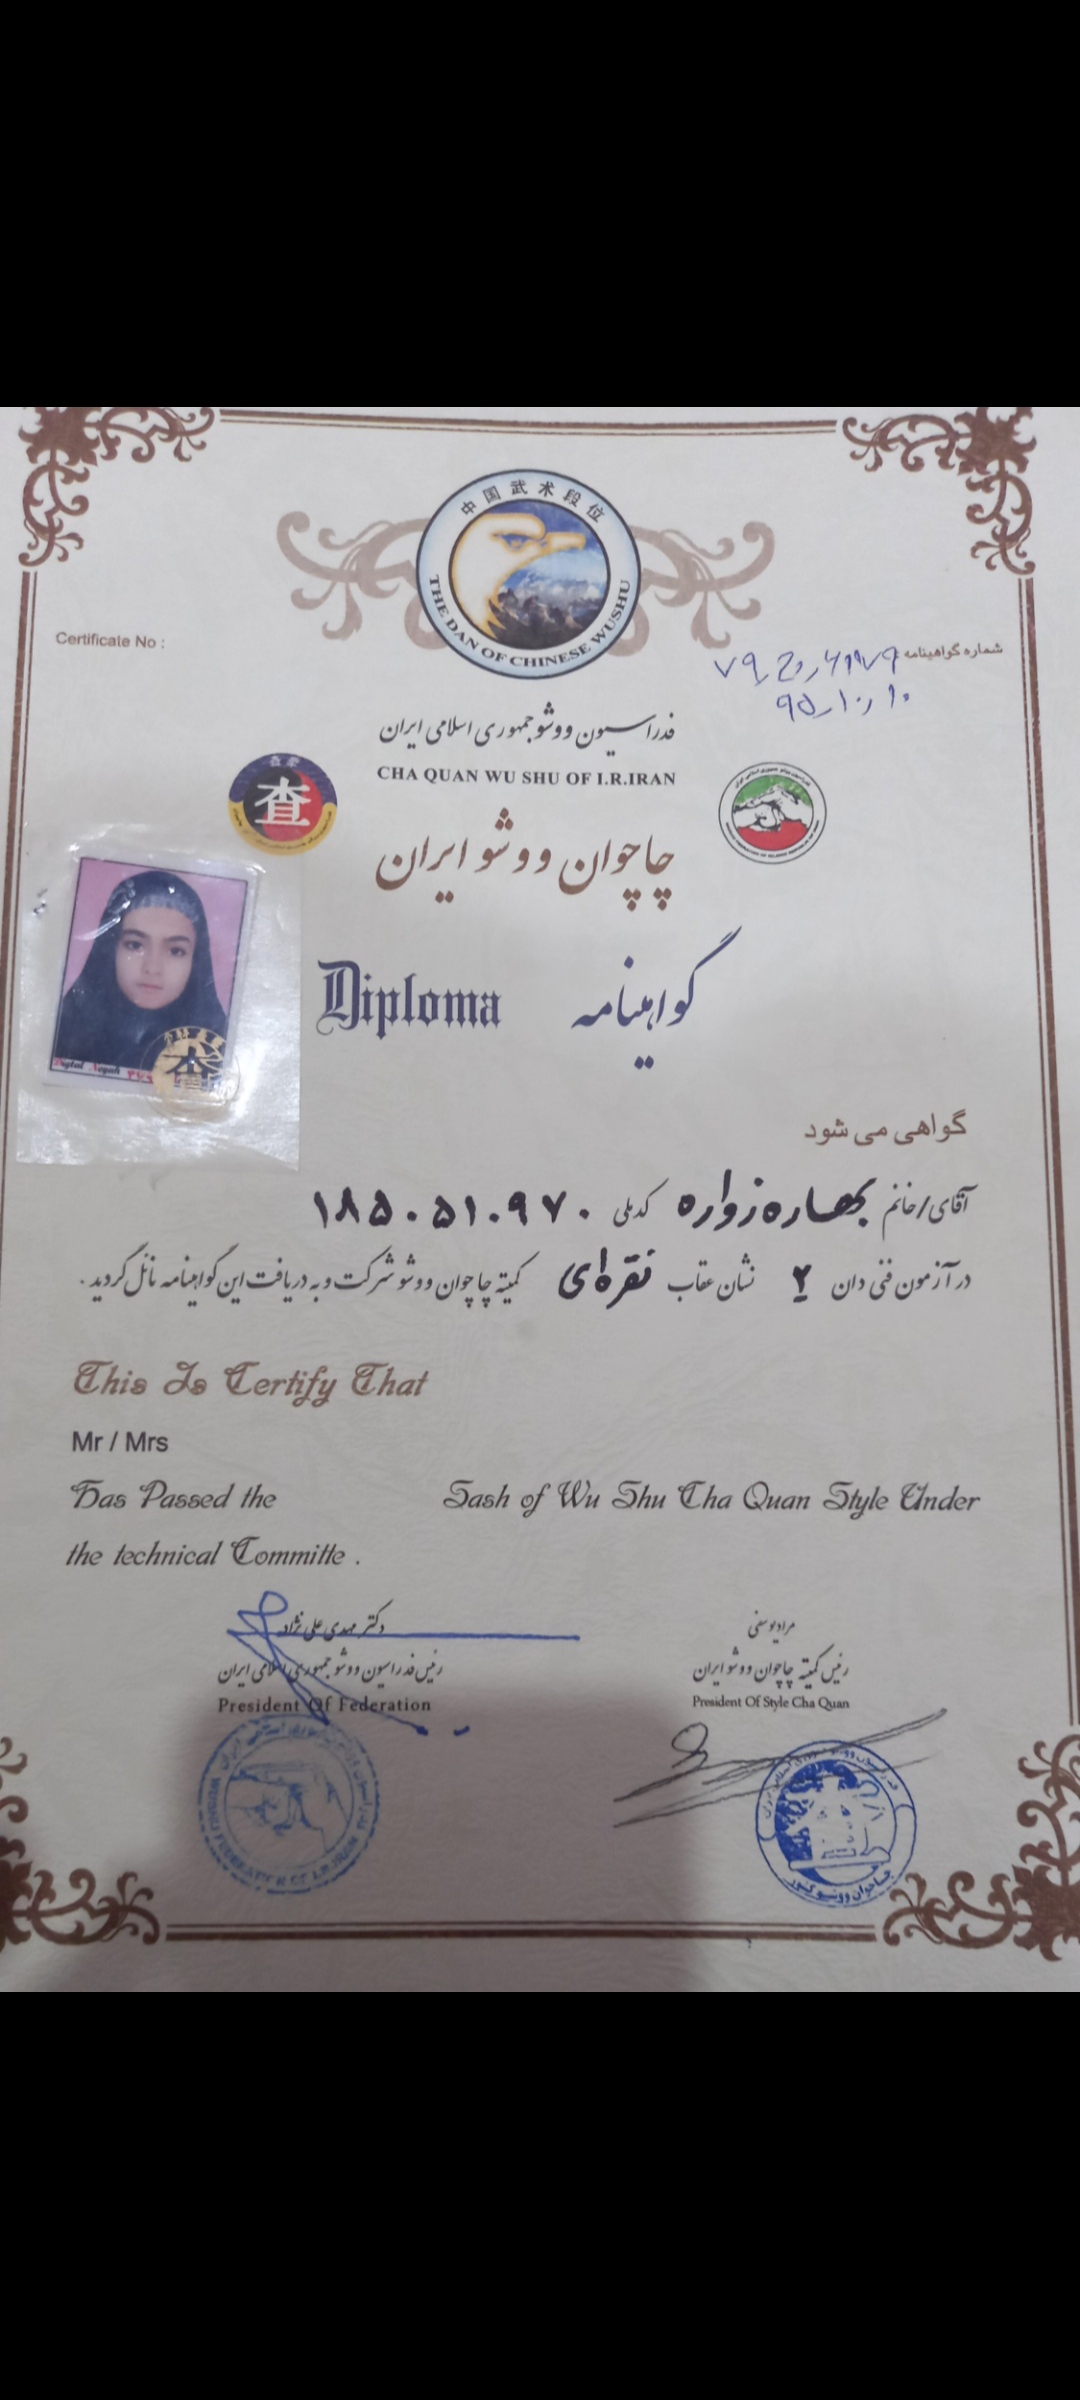 中国武术段位
THE DAN OF CHINESE WUSHU
Certificate No :
شماره گواهینامه :
فدراسیون ووشو جمهوری اسلامی ایران
CHA QUAN WU SHU OF I.R.IRAN
查
چاچوان ووشو ایران
Diploma گواهینامه
گواهی می شود
آقای/خانم بهاره زواره کد ملی ۱۸۵۰۵۱۰۹۷۰
در آزمون فنی دان ۲ نشان عقاب نقره‌ای کمیته چاچوان ووشو شرکت و به دریافت این گواهینامه نائل گردید .
This Is Certify That
Mr / Mrs
Has Passed the Sash of Wu Shu Cha Quan Style Under
the technical Committe .
دکتر مهدی علی نژاد
رئیس فدراسیون ووشو جمهوری اسلامی ایران
President Of Federation
مراد یوسفی
رئیس کمیته چاچوان ووشو ایران
President Of Style Cha Quan
WUSHU FEDERATION OF I.R.IRAN
چاچوان ووشو کشور